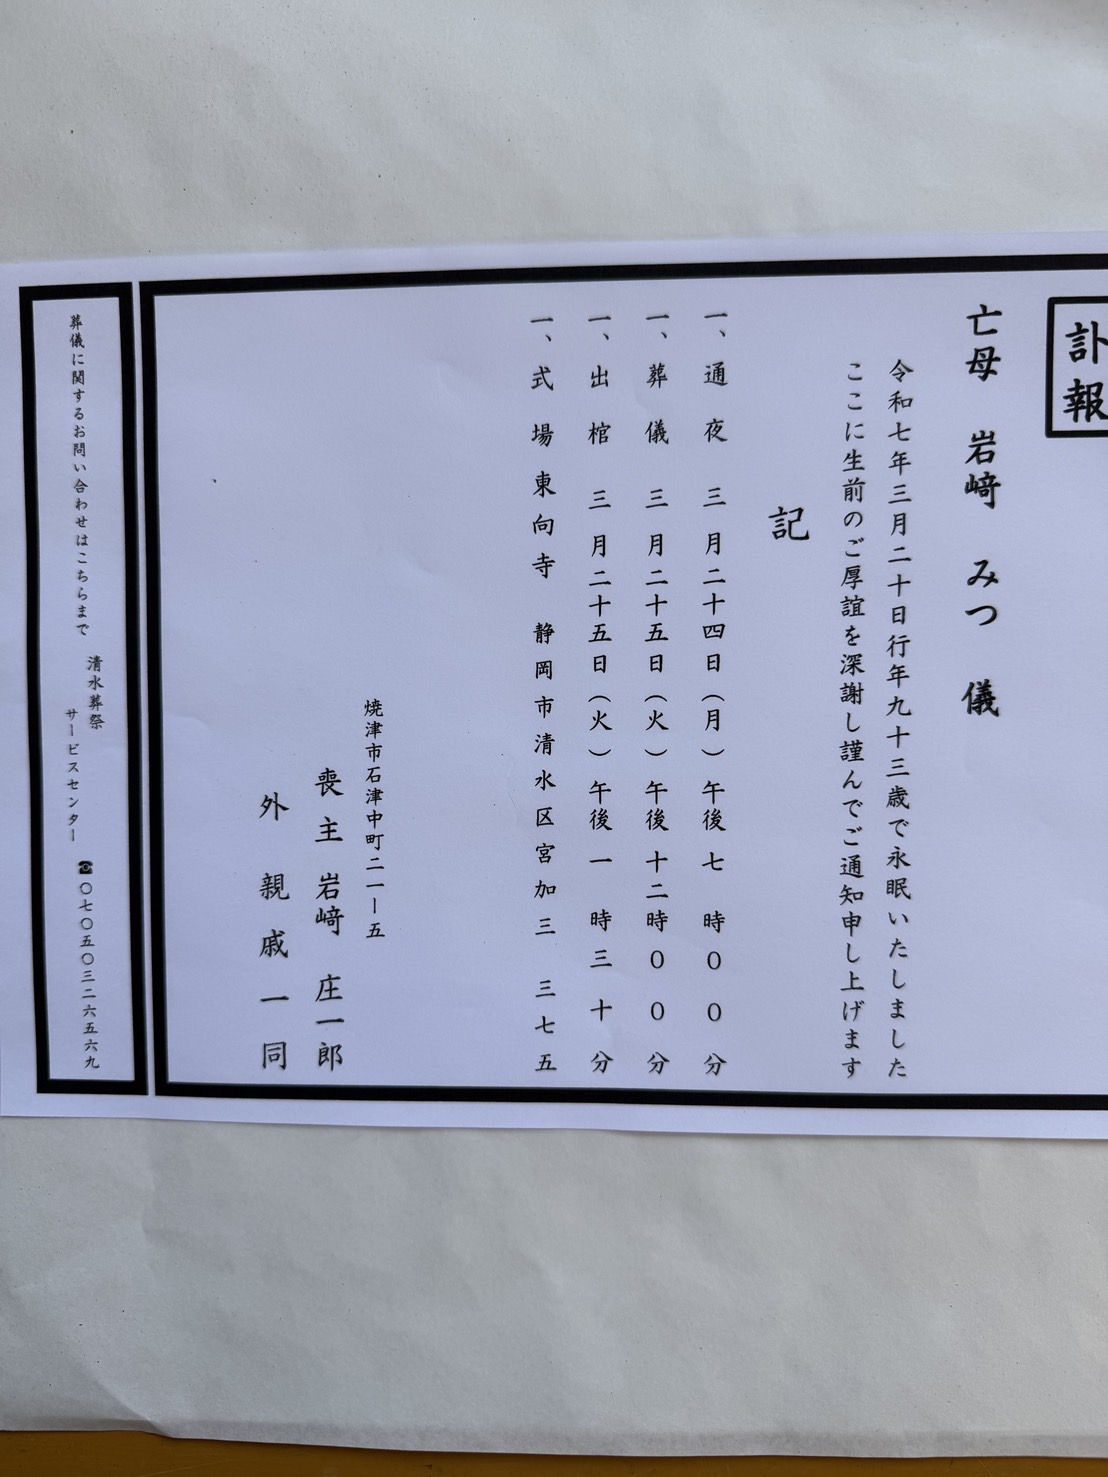 訃報
亡母 岩﨑 みつ 儀
令和七年三月二十日行年九十三歳で永眠いたしました
ここに生前のご厚誼を深謝し謹んでご通知申し上げます
記
一、通夜 三月二十四日(月)午後七時００分
一、葬儀 三月二十五日(火)午後十二時００分
一、出棺 三月二十五日(火)午後一時三十分
一、式場 東向寺 静岡市清水区宮加三 三七五
焼津市石津中町二一ー五
喪主 岩﨑 庄一郎
外 親戚一同
葬儀に関するお問い合わせはこちらまで 清水葬祭
サービスセンター ☎〇七〇五〇三二六五六九